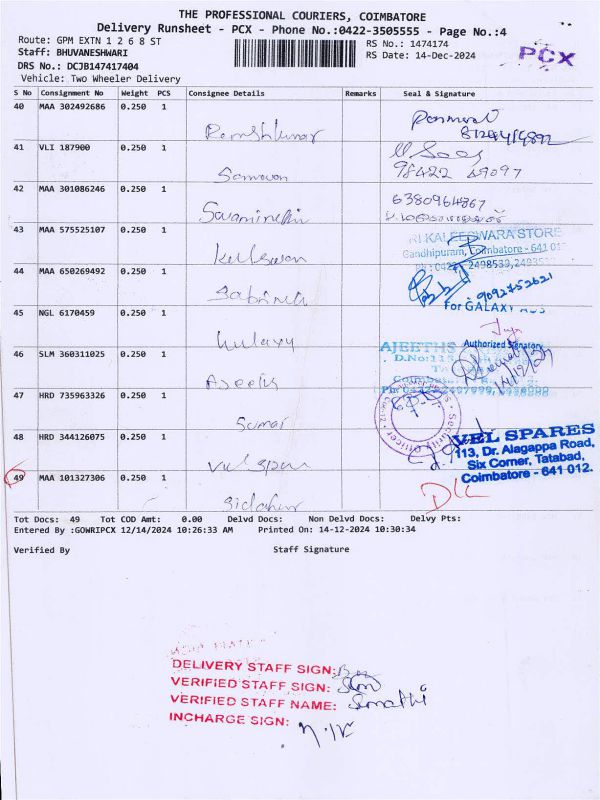 THE PROFESSIONAL COURIERS, COIMBATORE
Delivery Runsheet - PCX - Phone No.:0422-3505555 - Page No.:4
Route: GPM EXTN 1 2 6 8 ST
RS No.: 1474174
Staff: BHUVANESHWARI
RS Date: 14-Dec-2024
PCX
DRS No.: DCJB147417404
Vehicle: Two Wheeler Delivery
S No Consignment No Weight PCS Consignee Details Remarks Seal & Signature
40 MAA 302492686 0.250 1
Rameshkumar
41 VLI 187900 0.250 1
98422 49097
42 MAA 301086246 0.250 1
6380964867
43 MAA 575525107 0.250 1
KALEESWARA STORE
Gandhipuram, Coimbatore - 641 012
44 MAA 650269492 0.250 1
9092752621
for GALAXY
45 NGL 6170459 0.250 1
Authorized Signatory
46 SLM 360311025 0.250 1
AJEETHS
47 HRD 735963326 0.250 1
Security Officer
48 HRD 344126075 0.250 1
VEL SPARES
113, Dr. Alagappa Road,
Six Corner, Tatabad,
Coimbatore - 641 012.
49 MAA 101327306 0.250 1
Tot Docs: 49 Tot COD Amt: 0.00 Delvd Docs: Non Delvd Docs: Delvy Pts:
Entered By :GOWRIPCX 12/14/2024 10:26:33 AM Printed On: 14-12-2024 10:30:34
Verified By Staff Signature
DELIVERY STAFF SIGN:
VERIFIED STAFF SIGN:
VERIFIED STAFF NAME: Sumathi
INCHARGE SIGN: